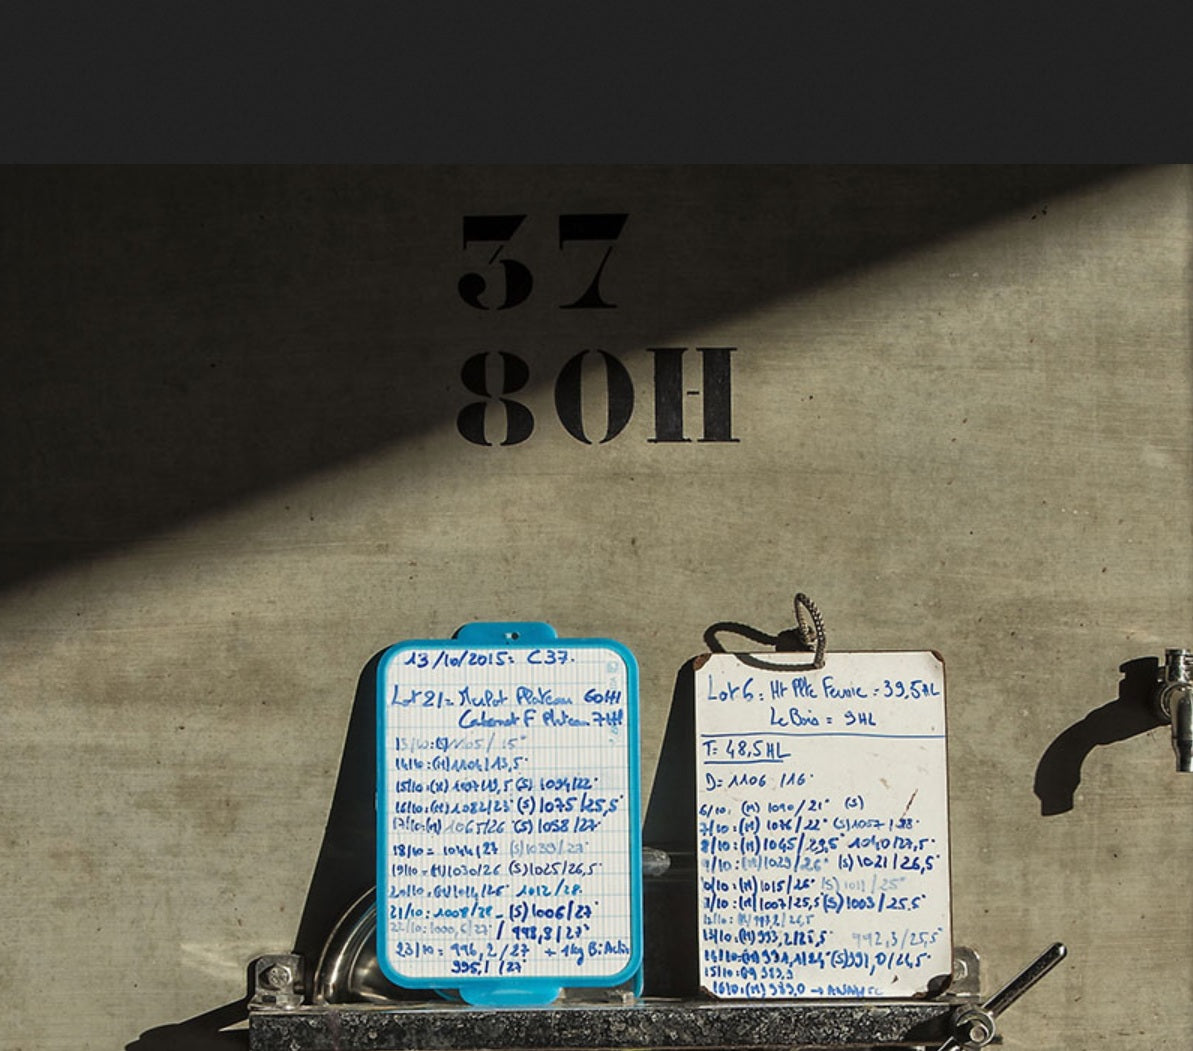 37
80H
13/10/2015: C37.
Lot 21= Merlot Plateau 60Hl
Cabernet F Plateau 7Hl
13/10:(S) 1105/ 15°
14/10:(M) 1104/13,5°
15/10:(M) (S) 1094/22°
16/10:(M) 1082/23° (S) 1075/25,5°
17/10:(M) 1065/26 (S) 1058/27°
18/10= 1044/27 (S) 1039/27°
19/10=(M) 1030/26 (S) 1025/26,5°
20/10:(M) 1012/28.
21/10: 1008/28 _ (S) 1006/27°
22/10: 1000,5/27° / 998,8/27°
23/10= 996,2 /27 + 1kg
995,1 /27°
Lot 6: Ht Pte = 39,5HL
Le Bois = 9HL
T= 48,5HL
D= 1106 /16°
6/10: (M) 1090/21° (S)
7/10:(M) 1076/22° (S) 1057 /28°
8/10:(M) 1045/29,5° 1040/27,5°
9/10:(M) 1029/26° (S) 1021/26,5°
10/10:(M) 1015/26° (S) 1011/25°
11/10:(M) 1007/25,5°(S) 1003/25.5°
12/10:(M) 997,2/26,5
13/10:(M) 993,2/25,5° 992,3/25,5°
14/10:(M) 991,1/24° (S) 991,0/24,5°
15/10:(M) 989,9
16/10:(M) 989,0 →